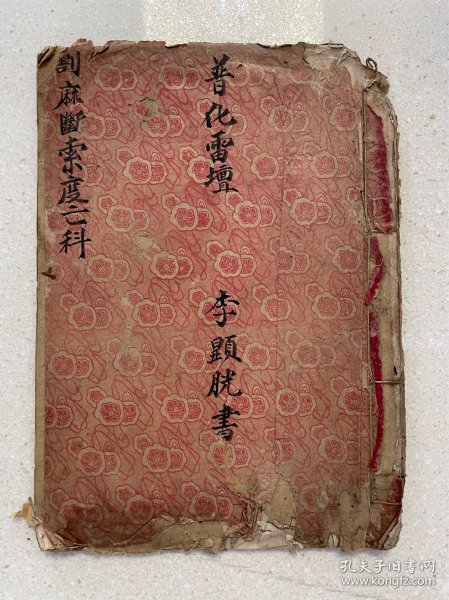 普化雷壇　李顯胱書
刮麻斷索度亡科
孔夫子旧书网
www.kongfz.com